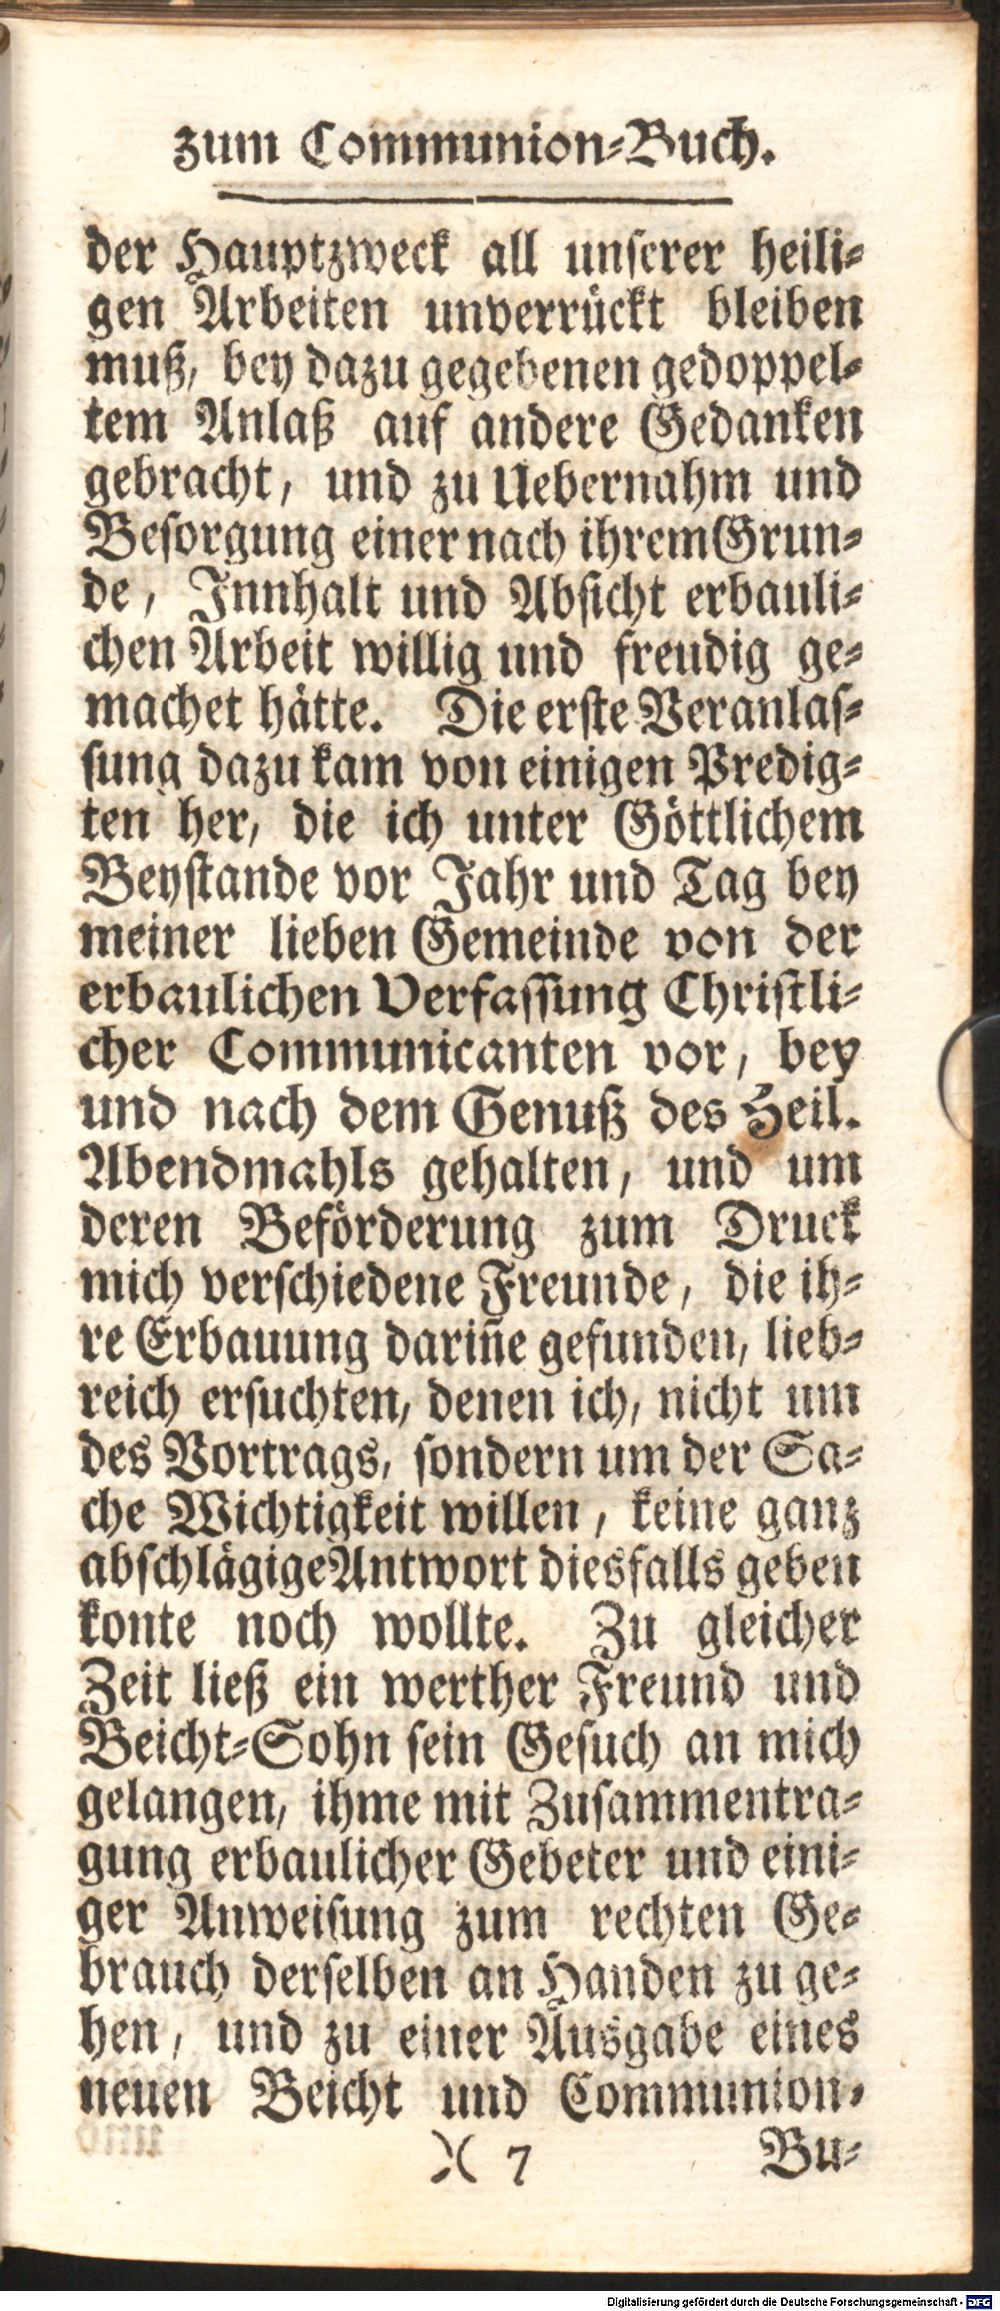 zum Communion-Buch.
der Hauptzweck all unserer heili-
gen Arbeiten unverrückt bleiben
muß, bey dazu gegebenen gedoppel-
tem Anlaß auf andere Gedanken
gebracht, und zu Uebernahm und
Besorgung einer nach ihrem Grun-
de, Innhalt und Absicht erbauli-
chen Arbeit willig und freudig ge-
machet hätte. Die erste Veranlas-
sung dazu kam von einigen Predig-
ten her, die ich unter Göttlichem
Beystande vor Jahr und Tag bey
meiner lieben Gemeinde von der
erbaulichen Verfassung Christli-
cher Communicanten vor, bey
und nach dem Genuß des Heil.
Abendmahls gehalten, und um
deren Beförderung zum Druck
mich verschiedene Freunde, die ih-
re Erbauung dariñe gefunden, lieb-
reich ersuchten, denen ich, nicht um
des Vortrags, sondern um der Sa-
che Wichtigkeit willen, keine ganz
abschlägige Antwort diesfalls geben
konte noch wollte. Zu gleicher
Zeit ließ ein werther Freund und
Beicht-Sohn sein Gesuch an mich
gelangen, ihme mit Zusammentra-
gung erbaulicher Gebeter und eini-
ger Anweisung zum rechten Ge-
brauch derselben an Handen zu ge-
hen, und zu einer Ausgabe eines
neuen Beicht und Communion-
)( 7 Bu-
Digitalisierung gefördert durch die Deutsche Forschungsgemeinschaft - DFG